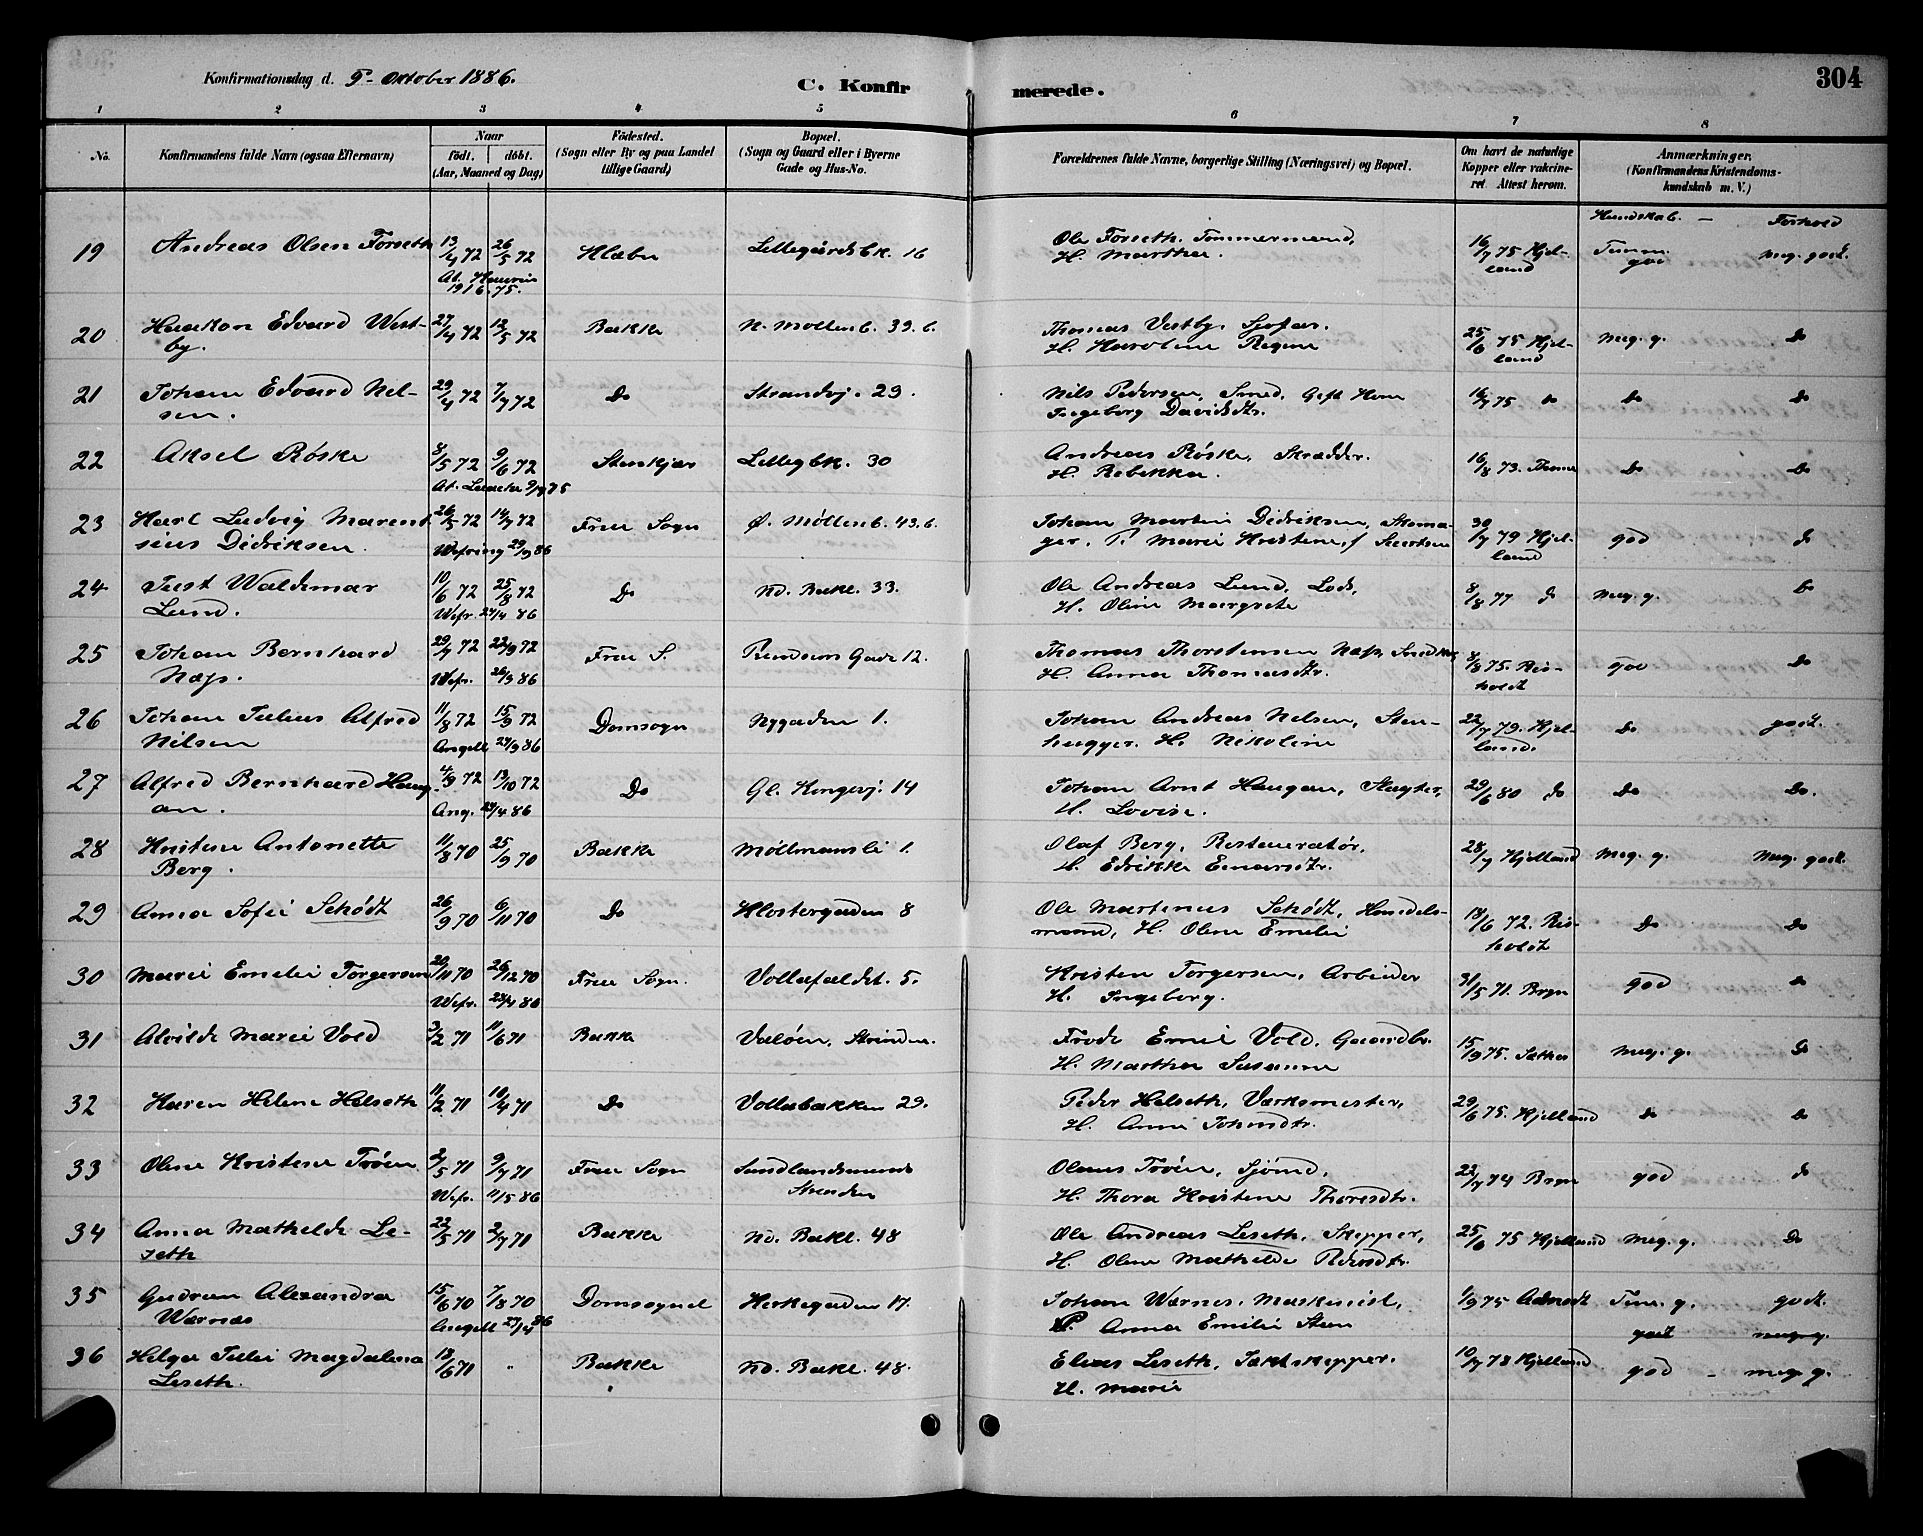 304
Konfirmationsdag d. 9- Oktober 1886.
C. Konfirmerede.
1 2 3 4 5 6 7 8
No.
Konfirmandens fulde Navn (ogsaa Efternavn)
Naar
födt. | döbt.
(Aar, Maaned og Dag)
Födested.
(Sogn eller By og paa Landet
tillige Gaard)
Bopæl.
(Sogn og Gaard eller i Byerne
Gade og Hus-No.
Forældrenes fulde Navne, borgerlige Stilling (Næringsvei) og Bopæl.
Om havt de naturlige
Kopper eller vakcine-
ret. Attest herom.
Anmærkninger.
(Konfirmandens Kristendoms-
kundskab m. V.)
Kundskab. – Forhold
19 Andreas Olsen Forseth 13/4 72 26/5 72 Klæbu Lillegårdsbk. 16 Ole Forseth, Tømmermand, 16/7 75 Kjel- Temm. Meg. godt.
H. Martha. land god
20 Haakon Edvard West- 27/4 72 12/5 72 Bakke N. Møllenb. 39. b. Thomas Vestby, 25/6 75 Kjel- Meg. g. Do
by. H. Karoline Regine land
21 Johan Edvard Nil- 29/4 72 7/7 72 Do Strandvj. 29. Nils Pedersen, Smed, Gift Kone 16/7 75 do Do Do
sen. Ingeborg Davidsdtr.
22 Aksel Røske 8/5 72 9/6 72 Stenkjær Lillegbk. 30 Andreas Røske, Skrædder. 16/8 73. Do Do
H. Rebekka.
23 Karl Ludvig Marent- 26/5 72 14/7 72 Frue Sogn Ø. Møllenb. 43. b. Johan Martin Didriksen, Skoma- 30/7 79 Kjel- god do
sius Didriksen. Wefring 29/9 86 ger. P. Marie Kristine, f land
24 Just Waldemar 10/6 72 25/8 72 Do Nd. Bakl. 33. Ole Andreas Lund, Lods, 8/8 77 do Meg. g. Do
Lund. Wefr. 27/4 86 H. Oline Margrete
25 Johan Bernhard 29/7 72 22/9 72 Frue S. Gade 12. Thomas Thorstensen Næss, 8/8 75. Ris- god Do
Næss. Wefr. 26/3 86 H. Anna Thomasdtr. holdt
26 Johan Julius Alfred 11/8 72 15/9 72 Domsogn Nygaden 1. Johan Andreas Nilsen, Sten- 22/7 79. Kjel- Do godt.
Nilsen Angell 27/9 86 hugger. H. Nikoline land.
27 Alfred Bernhard Haug- 4/9 72 13/10 72 Do Gl. Kongevj. 14 Johan Arnt Haugan, Slagter, 29/6 80 do Do Do.
an. Ang. 27/4 86 H. Lovise.
28 Kristine Antonette 11/8 70 25/9 70 Bakke Møllmansli 1. Olaf Berg, Restauratør, 28/7 Kjelland Meg. g. Meg. godt.
Berg. H. Edrikke Einarsdtr.
29 Anna Sofie Schødt 26/9 70 6/11 70 Do Klostergaden 8 Ole Martinus Schødt, Handels- 18/6 72. Ris- Do Do
mand, H. Oline Emelie holdt
30 Marie Emelie Torgersen 20/11 70 26/12 70 Frue Sogn. Vollafaldet. 5. Kristen Torgersen, Arbeider 31/5 71. Bryn god Do
Wefr. 27/4 86 H. Ingeborg.
31 Alvilde Marie Vold 3/2 71 11/6 71 Bakke Valøen, Strinden. Frode Emil Vold, Gaardbr. 15/9 75. Sæther Meg. g. do
H. Martha Susanna
32 Karen Helene Helseth 11/2 71 10/4 71 Do Vollabakken 29. Peder Helseth, Værksmester, 29/6 75. Kjelland do Do
H. Anne Johnsdtr.
33 Oline Kristine Trøen 2/5 71 9/7 71 Frue Sogn Sundlandsmunds Olaus Trøen, Sjømd, 22/7 74 Bryn god do
Wefr. 11/5 86 Stranden H. Thora Kristine Thoresdtr.
34 Anna Mathilde Le- 22/5 71 2/7 71 Bakke Nd. Bakl. 48 Ole Andreas Leseth, Skipper, 25/6 75 Kjelland Meg. g. Do
seth H. Oline Mathilde Pedersdtr.
35 Gudrun Alexandra 15/6 70 7/8 70 Domsognet Kirkegaden 17. Johan Wærnes, Maskinist, 1/9 75 Tem. g. godt.
Wærnæs Angell 27/4 86 P. Anna Emilie Steen
godt meg. g.
36 Helga Julie Magdalena 18/6 70 " Bakke Nd. Bakl. 48. Elias Leseth, Jaktskipper. 10/7 78 Kjelland god – meg. g.
Leseth. H. Marie